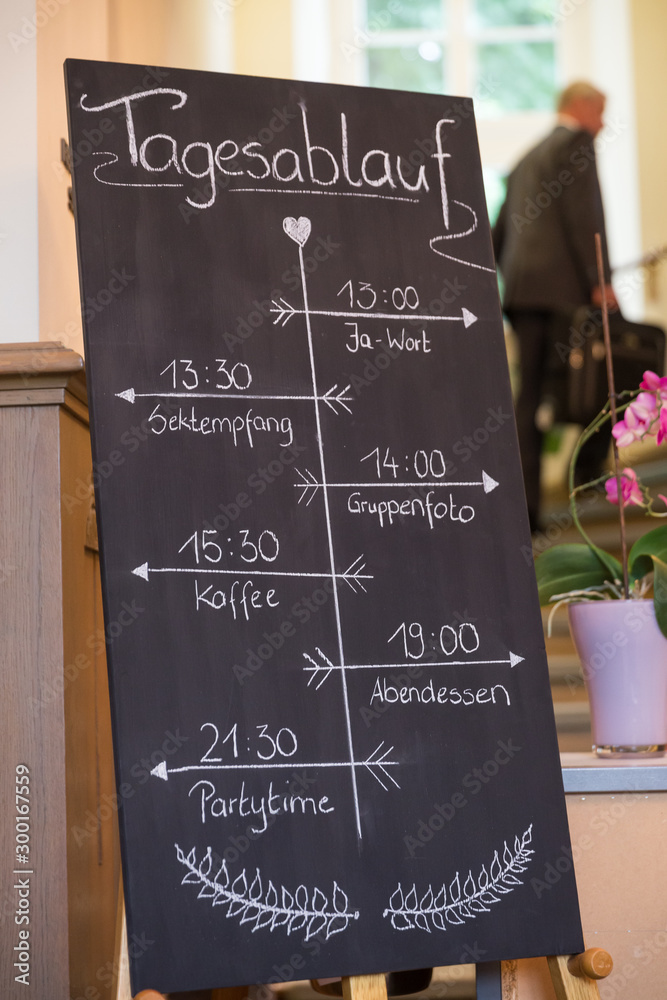 Tagesablauf
13:00
Ja-Wort
13:30
Sektempfang
14:00
Gruppenfoto
15:30
Kaffee
19:00
Abendessen
21:30
Partytime
Adobe Stock | #300167559